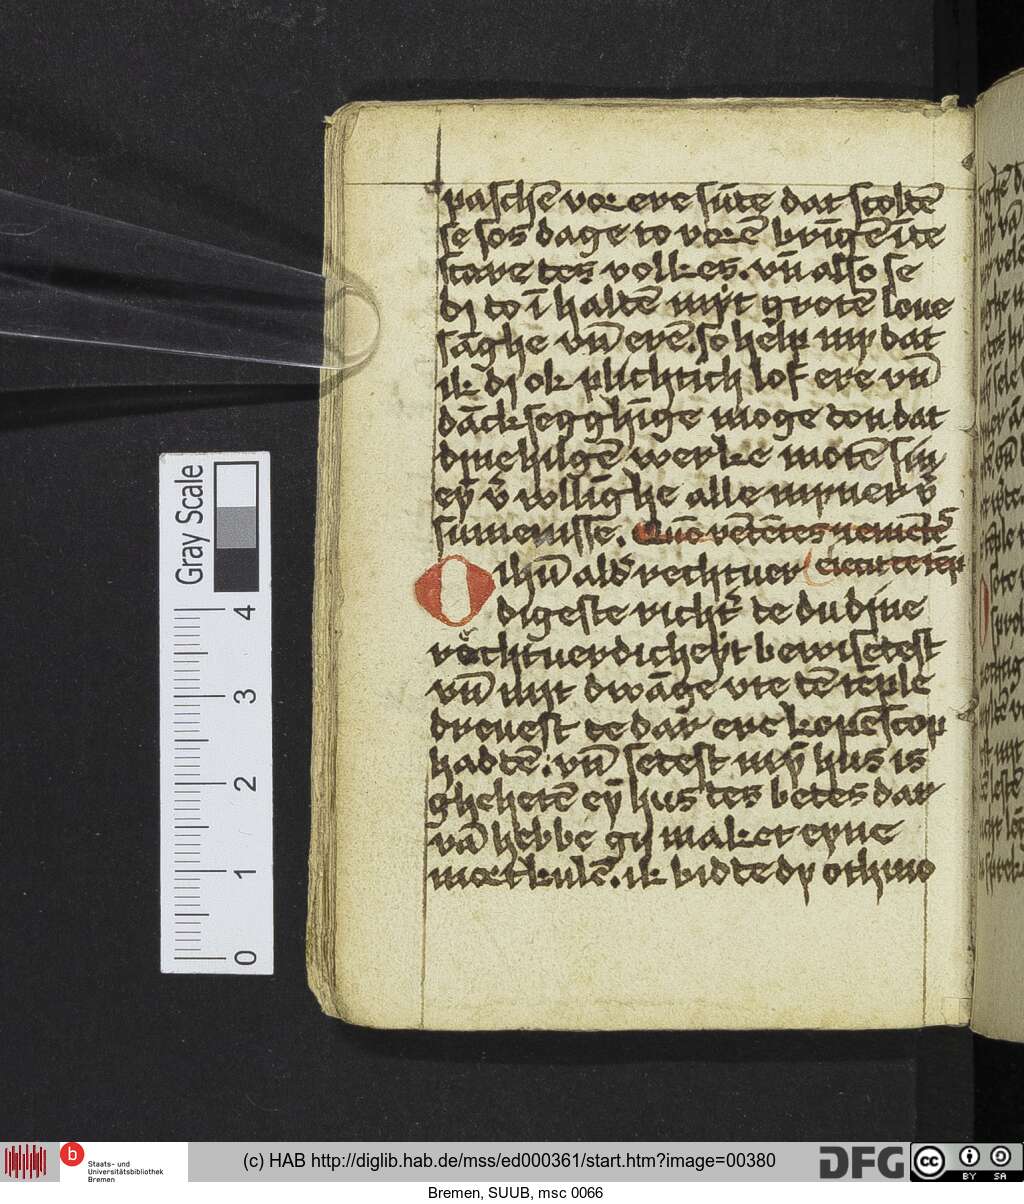 paschē vor ere sūte dat scoldē
se sos dage to vorē brīgē īte
stove tes volkes. vn̄ also se
di to ī haldē myt grotē love
sāghe vn̄ erē. so help my dat
ik di ok plichtich lof ere vn̄
dāck segghīge moge don dat
dine hilgē werke motē sin
eȳ v̄ vollīghe alle myner v̄
sumenisse. Quō vēdētes ⁊ emētes
eiecit de tēp
O ihū alð rechtver
digeste richt͛ de du dine
rechtverdicheyt bewisetest
vn̄ myt dwāge vte dē tēple
drevest de dar ere kopēscop
haddē. vn̄ sedest mȳ hus is
gheheten eȳ hus des bedes dar
vā hebbe gy maket eyne
mortkulē. ik bidde dy othmo
Gray Scale
4
3
2
1
0
b
Staats- und
Universitätsbibliothek
Bremen
(c) HAB http://diglib.hab.de/mss/ed000361/start.htm?image=00380
DFG
cc
BY SA
Bremen, SUUB, msc 0066